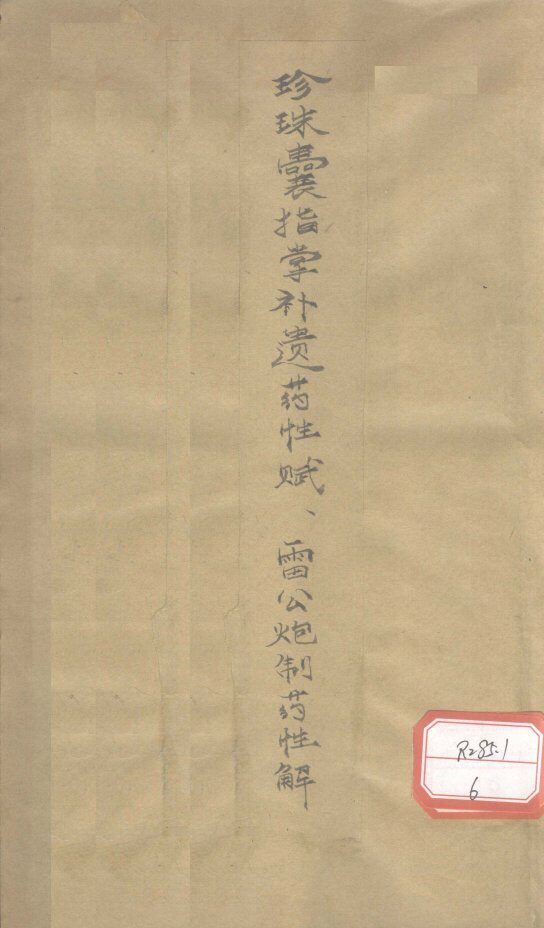 珍珠囊指掌补遗药性赋、雷公炮制药性解
R285.1
6